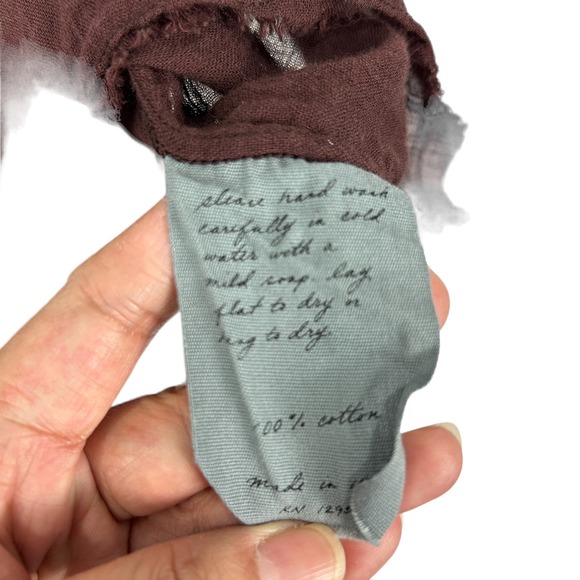 please hand wash
carefully in cold
water with a
mild soap. lay
flat to dry or
to dry
100% cotton
made in
RN 1295